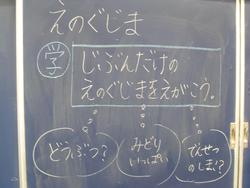 えのぐじま
学
じぶんだけの
えのぐじまをえがこう。
どうぶつ?
みどり
いっぱい
でんせつ
のしま!?